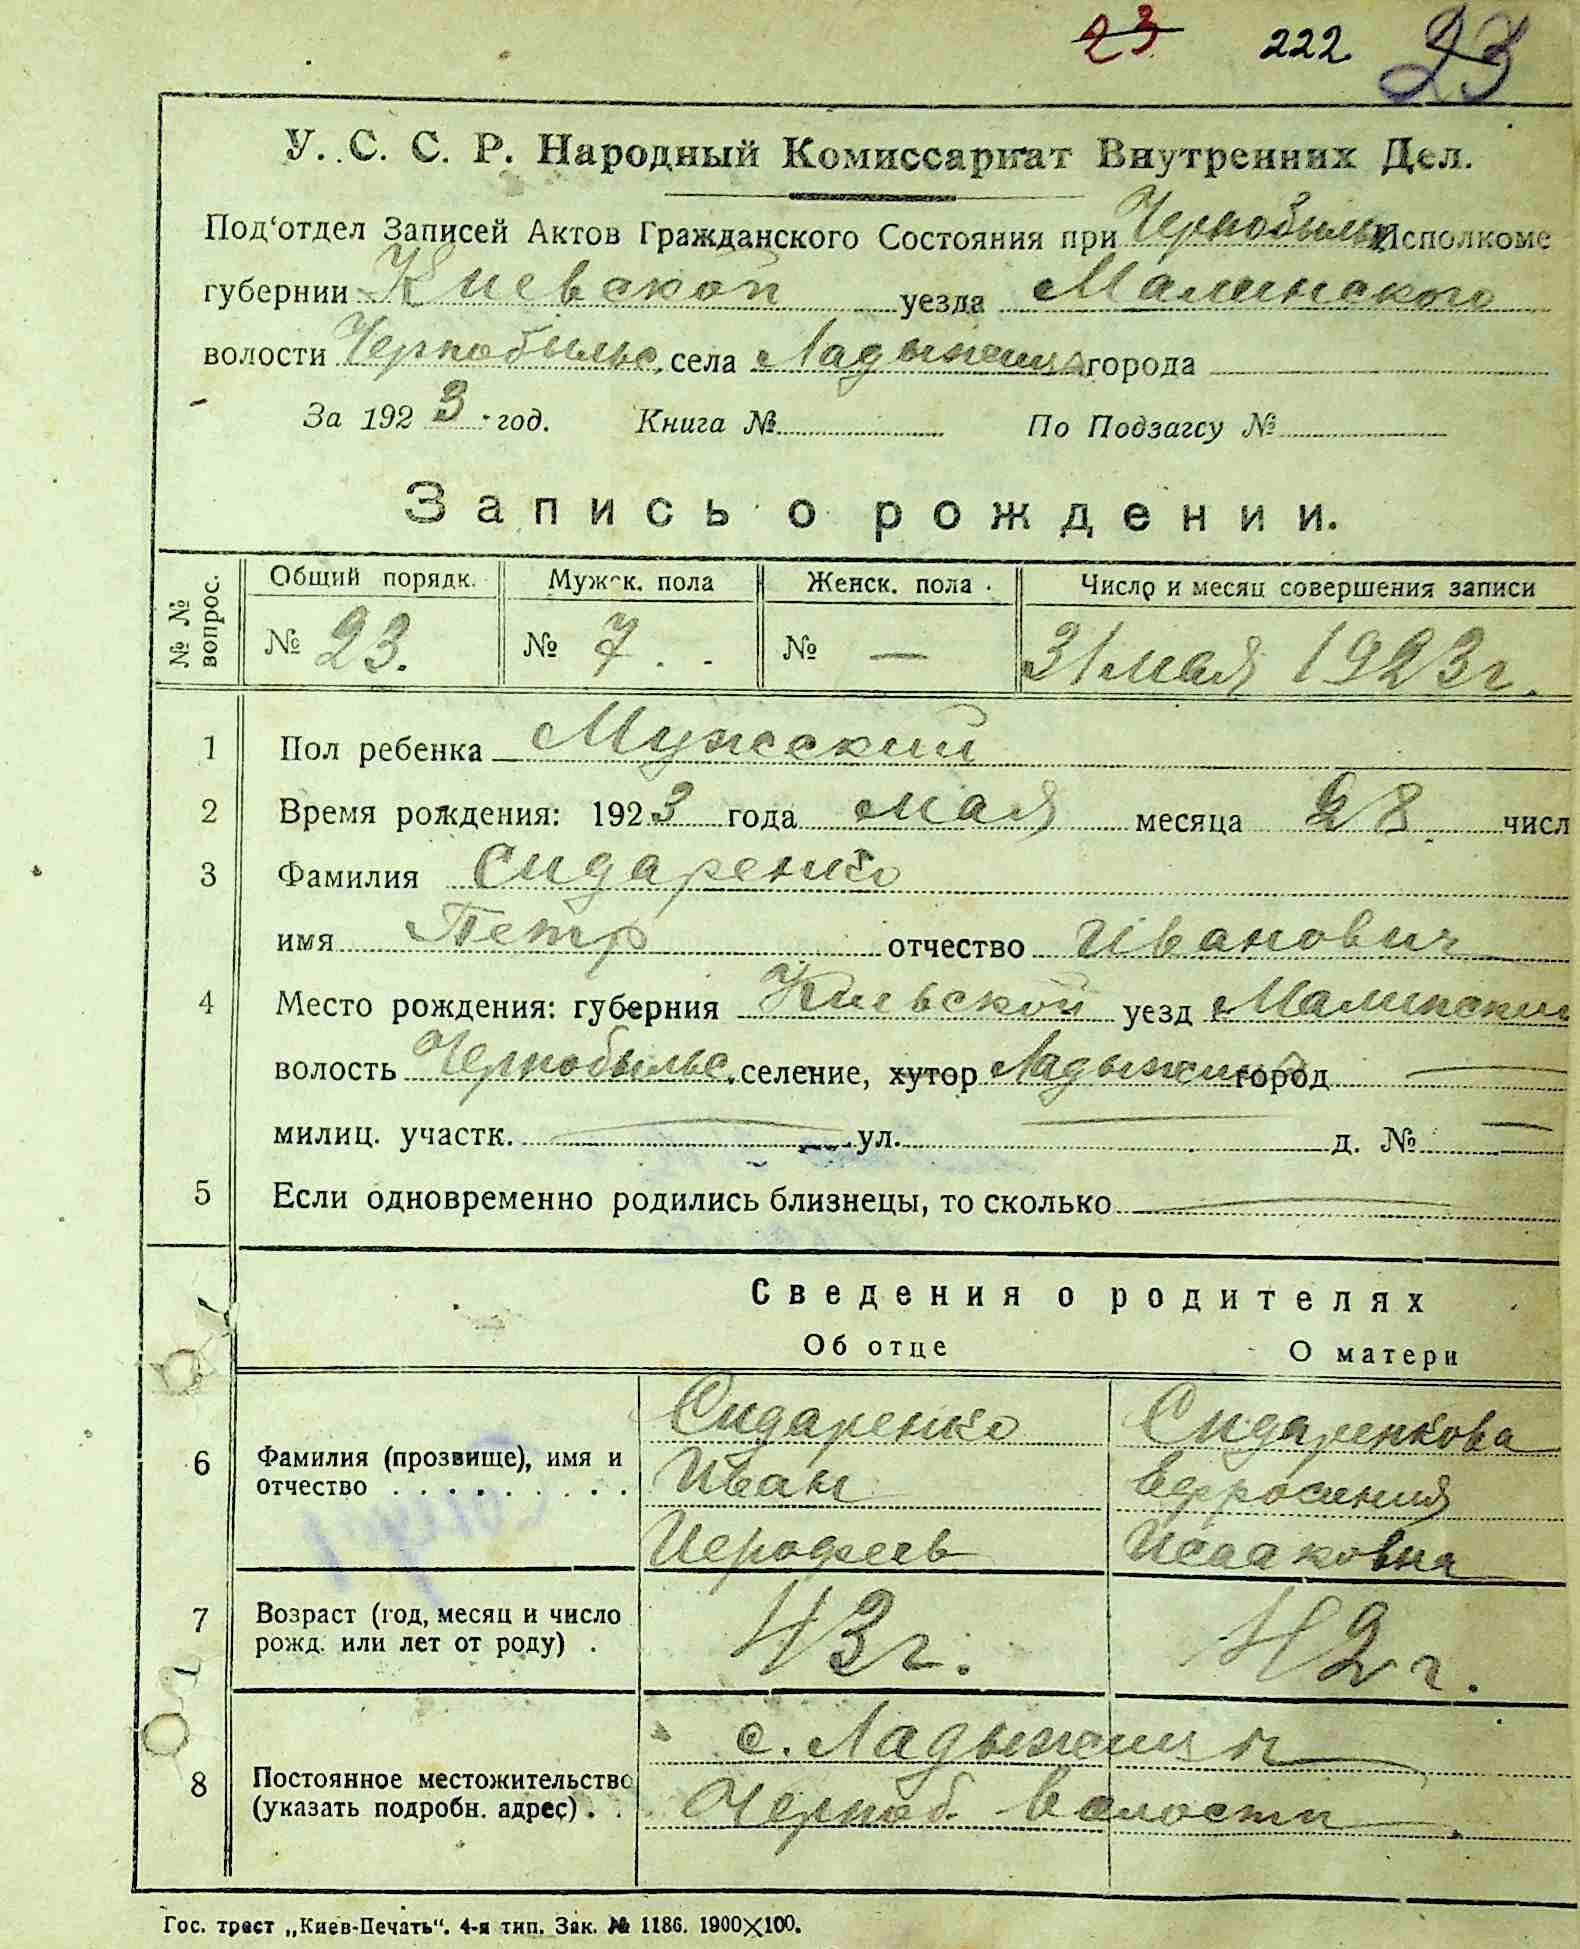 23 222. 23
У. С. С. Р. Народный Комиссариат Внутренних Дел.
Под‘отдел Записей Актов Гражданского Состояния при Чернобыльс Исполкоме
губернии Киевской уезда Малинского
волости Чернобыльс. села Ладыжичи города
За 1923 год. Книга № По Подзагсу №
Запись о рождении.
№ № вопрос. Общий порядк. Мужск. пола Женск. пола Число и месяц совершения записи
№ 23. № 7. № — 31 мая 1923 г.
1 Пол ребенка Мужский
2 Время рождения: 1923 года мая месяца 28 числ
3 Фамилия Сидаренко
имя Петр отчество Иванович
4 Место рождения: губерния Киевской уезд Малински
волость Чернобыльс. селение, хутор Ладыжичи город —
милиц. участк. — ул. — д. № —
5 Если одновременно родились близнецы, то сколько —
Сведения о родителях
Об отце О матери
6 Фамилия (прозвище), имя и отчество
Сидаренко Сидаренкова
Иван Ефросения
Иерофеев Исааковна
7 Возраст (год, месяц и число рожд. или лет от роду) . 43 г. 42 г.
8 Постоянное местожительство (указать подробн. адрес) . .
с. Ладыжичи
Черноб. волости
Гос. трест „Киев-Печать“. 4-я тип. Зак. № 1186. 1900×100.